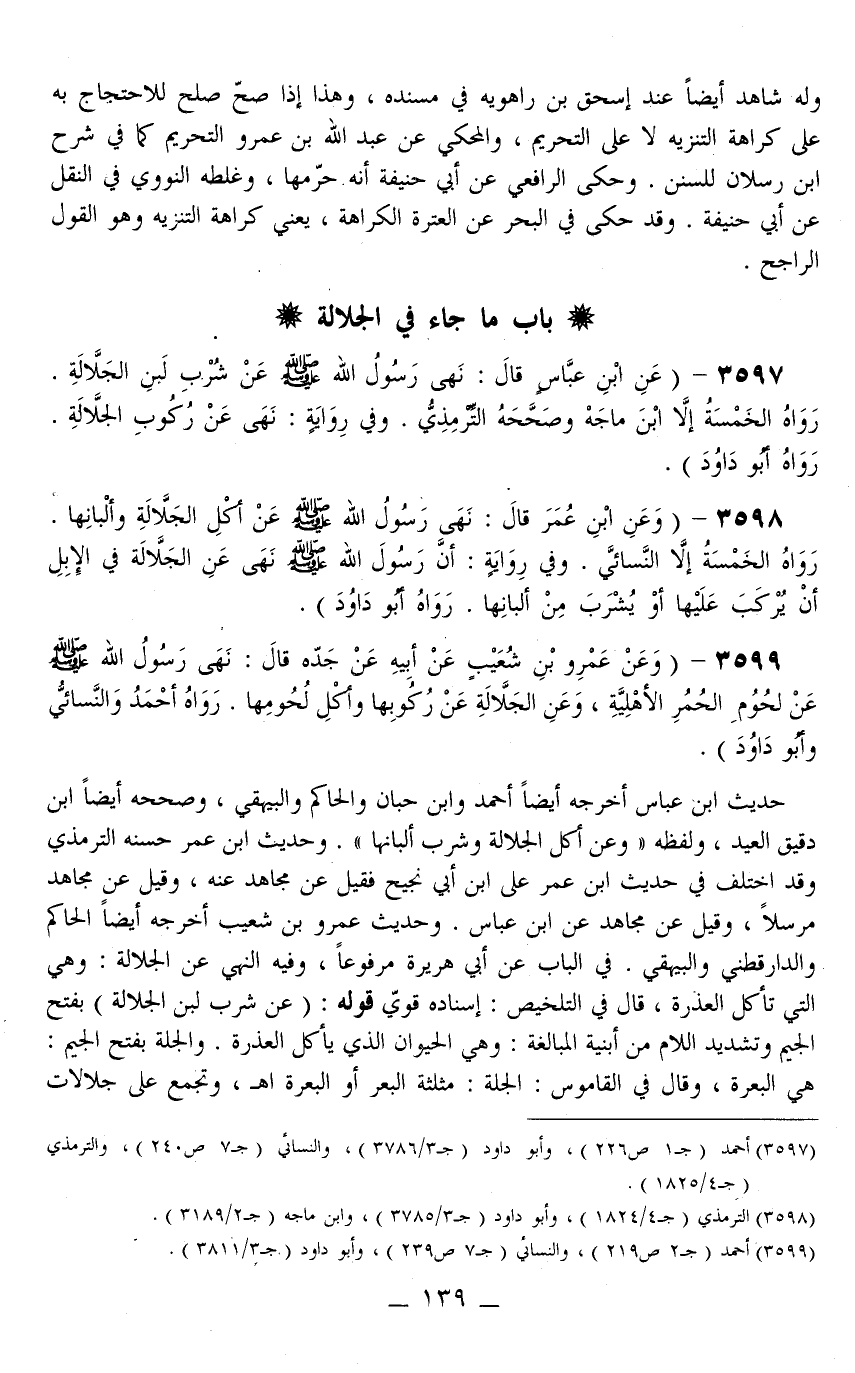 وله شاهد أيضاً عند إسحق بن راهويه في مسنده ، وهذا إذا صحّ صلح للاحتجاج به
على كراهة التنزيه لا على التحريم ، والمحكي عن عبد الله بن عمرو التحريم كما في شرح
ابن رسلان للسنن . وحكى الرافعي عن أبي حنيفة أنه حرّمها ، وغلطه النووي في النقل
عن أبي حنيفة . وقد حكى في البحر عن العترة الكراهة ، يعني كراهة التنزيه وهو القول
الراجح .
❋ باب ما جاء في الجلالة ❋
٣٥٩٧ – ( عَنِ ابْنِ عبَّاسٍ قالَ : نَهى رَسُولُ الله ﷺ عَنْ شُرْبِ لَبنِ الجَلَّالَةِ .
رَوَاهُ الخَمْسَةُ إلَّا ابْنَ ماجَهْ وصَحَّحَهُ التِّرْمِذِيُّ . وفي رِوَايَةٍ : نَهَى عَنْ رُكُوبِ الجَلَّالَةِ .
رَوَاهُ أبُو دَاوُدَ ) .
٣٥٩٨ – ( وَعَنِ ابْنِ عُمَرَ قالَ : نَهَى رَسُولُ الله ﷺ عَنْ أكْلِ الجَلَّالَةِ وألْبانِها .
رَوَاهُ الخَمْسَةُ إلَّا النَّسائيَّ . وفي رِوَايَةٍ : أنَّ رَسُولَ الله ﷺ نَهَى عَنِ الجَلَّالَة في الإِبِلِ
أنْ يُرْكَبَ عَلَيْها أوْ يُشْرَبَ مِنْ ألبانِها . رَوَاهُ أبُو دَاوُدَ ) .
٣٥٩٩ – ( وَعَنْ عَمْرِو بْنِ شُعَيْبٍ عَنْ أبِيهِ عَنْ جَدّه قالَ : نَهَى رَسُولُ الله ﷺ
عَنْ لحُوُمِ الحُمُرِ الأهْلِيَّةِ ، وَعَنِ الجَلَّالَةِ عَنْ رُكُوبِها وأكْلِ لُحُومِها . رَوَاهُ أحْمَدُ وَالنَّسائيُّ
وأبُو دَاوُدَ ) .
حديث ابن عباس أخرجه أيضاً أحمد وابن حبان والحاكم والبيهقي ، وصححه أيضاً ابن
دقيق العيد ، ولفظه « وعن أكل الجلالة وشرب ألبانها » . وحديث ابن عمر حسنه الترمذي
وقد اختلف في حديث ابن عمر على ابن أبي نجيح فقيل عن مجاهد عنه ، وقيل عن مجاهد
مرسلاً ، وقيل عن مجاهد عن ابن عباس . وحديث عمرو بن شعيب أخرجه أيضاً الحاكم
والدارقطني والبيهقي . في الباب عن أبي هريرة مرفوعاً ، وفيه النهي عن الجلالة : وهي
التي تأكل العذرة ، قال في التلخيص : إسناده قويّ قوله : ( عن شرب لبن الجلالة ) بفتح
الجيم وتشديد اللام من أبنية المبالغة : وهي الحيوان الذي يأكل العذرة . والجلة بفتح الجيم :
هي البعرة ، وقال في القاموس : الجلة : مثلثة البعر أو البعرة اهـ ، وتجمع على جلالات
(٣٥٩٧) أحمد ( جـ١ ص٢٢٦ ) ، وأبو داود ( جـ٣/٣٧٨٦ ) ، والنسائي ( جـ٧ ص٢٤٠ ) ، والترمذي
( جـ٤/١٨٢٥ ) .
(٣٥٩٨) الترمذي ( جـ٤/١٨٢٤ ) ، وأبو داود ( جـ٣/٣٧٨٥ ) ، وابن ماجه ( جـ٢/٣١٨٩ ) .
(٣٥٩٩) أحمد ( جـ٢ ص٢١٩ ) ، والنسائي ( جـ٧ ص٢٣٩ ) ، وأبو داود ( جـ٣/٣٨١١ ) .
– ١٣٩ –